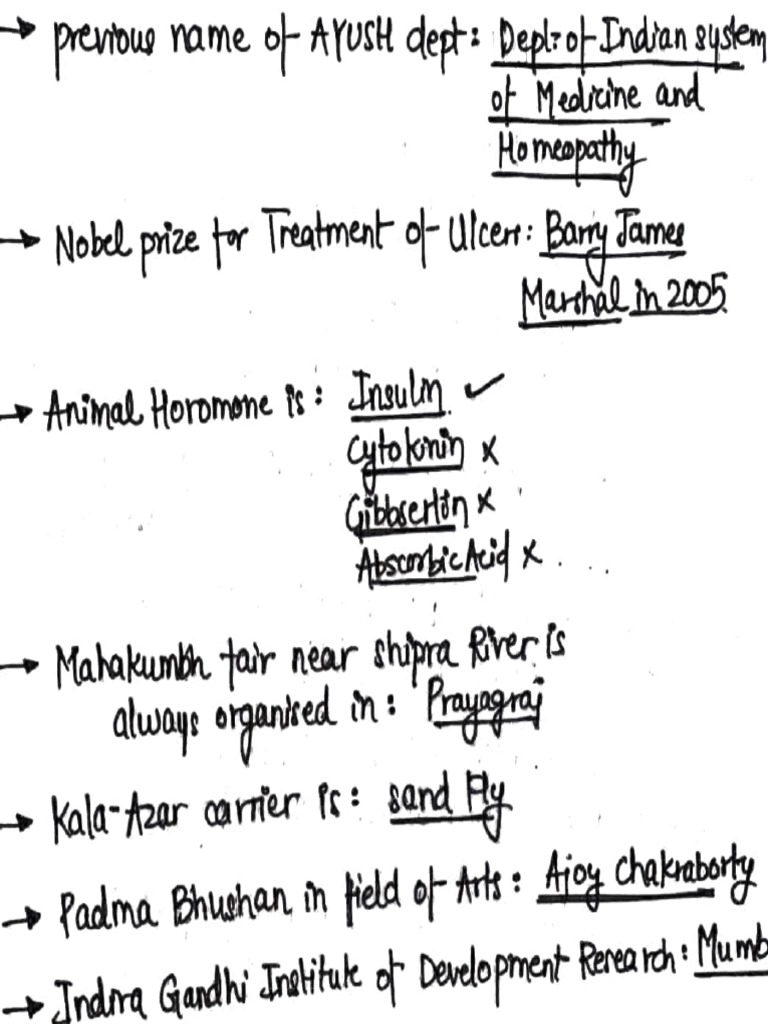 → previous name of AYUSH dept: Dept: of Indian system
of Medicine and
Homeopathy
→ Nobel prize for Treatment of Ulcers: Barry James
Marshal in 2005.
→ Animal Horomone is: Insulin ✓
Cytokinin x
Gibbserlin x
Abscorbic Acid x
→ Mahakumbh fair near shipra River is
always organised in: Prayagraj
→ Kala-Azar carrier is: sand Fly
→ Padma Bhushan in field of Arts: Ajoy Chakraborty
→ Indira Gandhi Institute of Development Research: Mumb